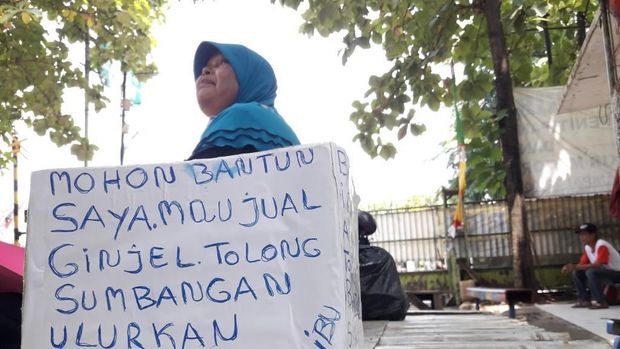 MOHON BANTUN
SAYA.MAU JUAL
GINJEL.TOLONG
SUMBANGAN
ULURKAN
IBU